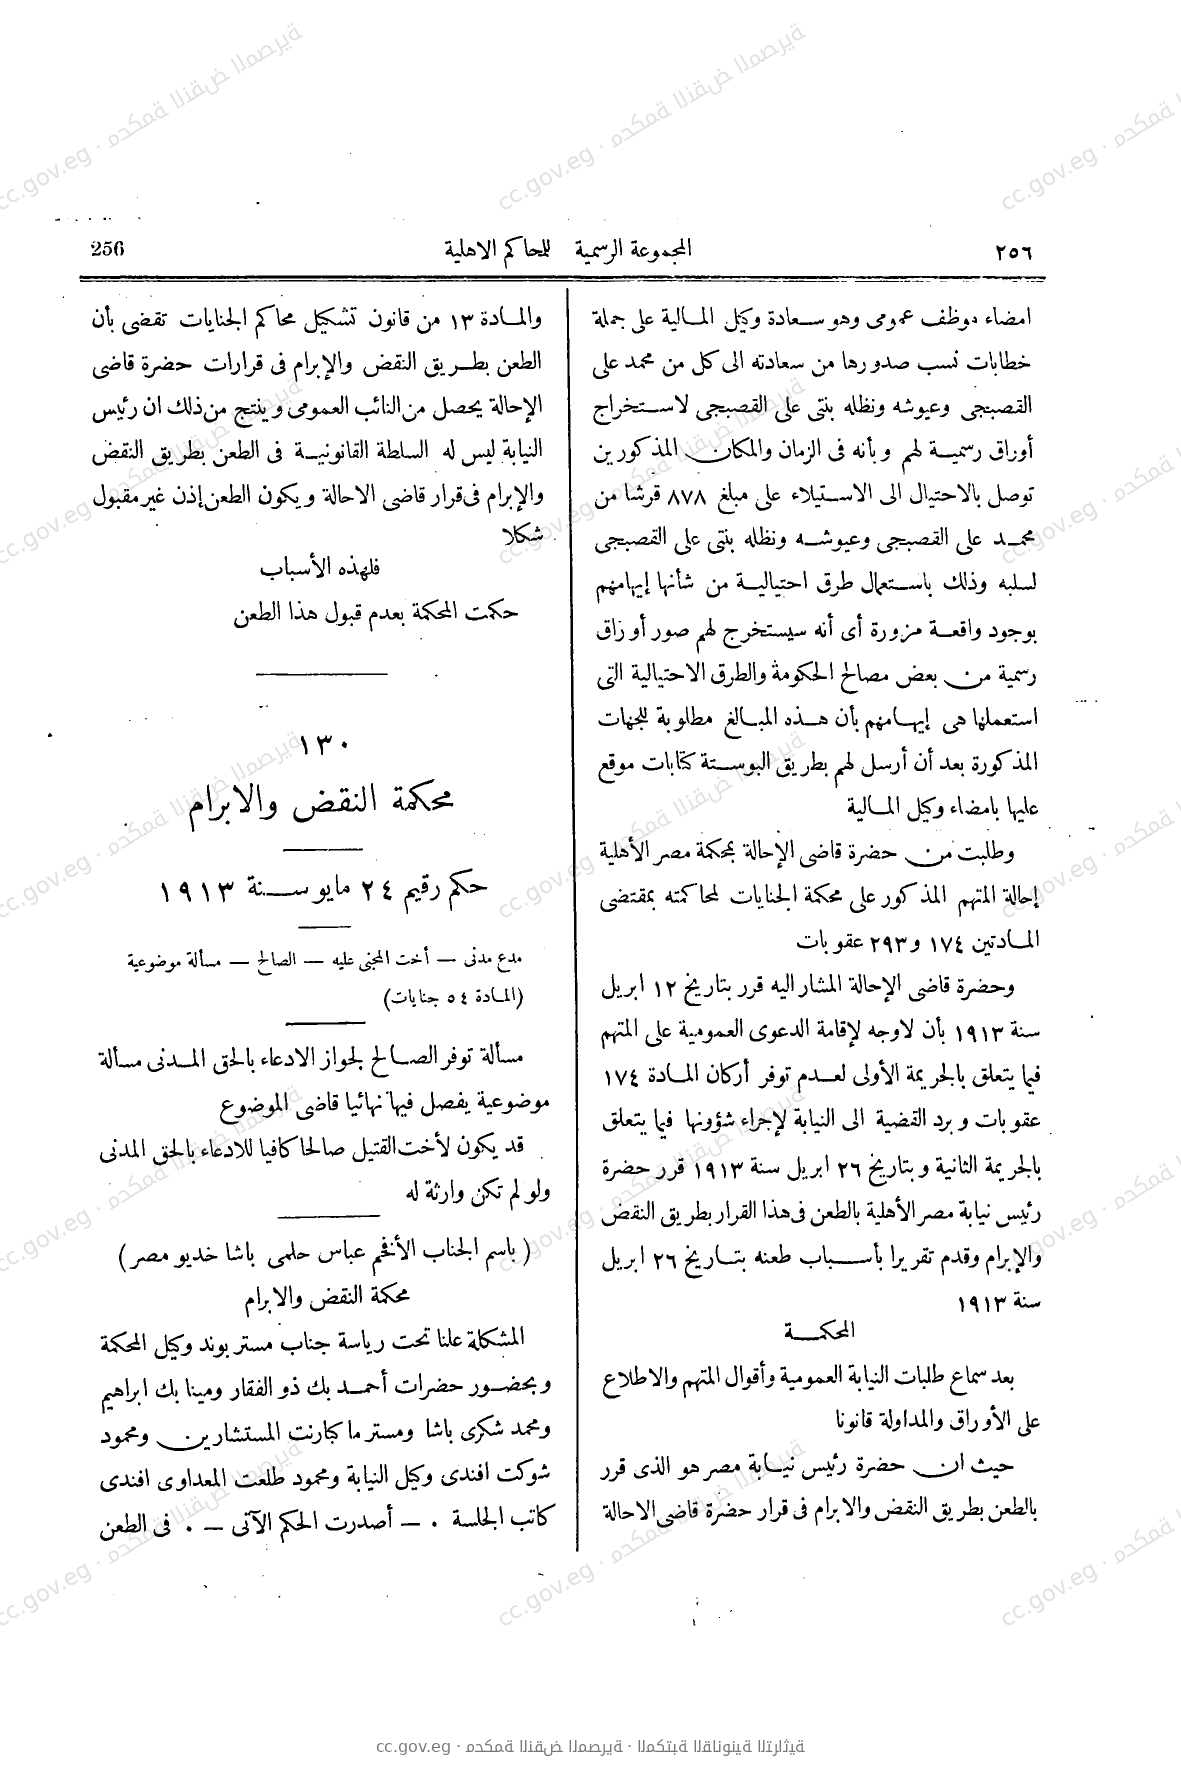 ٢٥٦
المجموعة الرسمية للمحاكم الاهلية
256
امضاء موظف عمومى وهو سعادة وكيل المالية على جملة
خطابات نسب صدورها من سعادته الى كل من محمد على
القصبجى وعيوشه ونظله بنتى على القصبجى لاستخراج
أوراق رسمية لهم وبأنه فى الزمان والمكان المذكورين
توصل بالاحتيال الى الاستيلاء على مبلغ ٨٧٨ قرشا من
محمد على القصبجى وعيوشه ونظله بنتى على القصبجى
لسلبه وذلك باستعمال طرق احتيالية من شأنها إيهامهم
بوجود واقعة مزورة أى أنه سيستخرج لهم صور أوراق
رسمية من بعض مصالح الحكومة والطرق الاحتيالية التى
استعملها هى إيهامهم بأن هذه المبالغ مطلوبة للجهات
المذكورة بعد أن أرسل لهم بطريق البوستة كتابات موقع
عليها بامضاء وكيل المالية
وطلبت من حضرة قاضى الإحالة بمحكمة مصر الأهلية
إحالة المتهم المذكور على محكمة الجنايات لمحاكمته بمقتضى
المادتين ١٧٤ و٢٩٣ عقوبات
وحضرة قاضى الإحالة المشار اليه قرر بتاريخ ١٢ ابريل
سنة ١٩١٣ بأن لاوجه لإقامة الدعوى العمومية على المتهم
فيما يتعلق بالجريمة الأولى لعدم توفر أركان المادة ١٧٤
عقوبات وبرد القضية الى النيابة لإجراء شؤونها فيما يتعلق
بالجريمة الثانية وبتاريخ ٢٦ ابريل سنة ١٩١٣ قرر حضرة
رئيس نيابة مصر الأهلية بالطعن فى هذا القرار بطريق النقض
والإبرام وقدم تقريرا بأسباب طعنه بتاريخ ٢٦ ابريل
سنة ١٩١٣
المحكمة
بعد سماع طلبات النيابة العمومية وأقوال المتهم والاطلاع
على الأوراق والمداولة قانونا
حيث ان حضرة رئيس نيابة مصر هو الذى قرر
بالطعن بطريق النقض والابرام فى قرار حضرة قاضى الاحالة
والمادة ١٣ من قانون تشكيل محاكم الجنايات تقضى بأن
الطعن بطريق النقض والإبرام فى قرارات حضرة قاضى
الإحالة يحصل من النائب العمومى وينتج من ذلك ان رئيس
النيابة ليس له السلطة القانونية فى الطعن بطريق النقض
والإبرام فى قرار قاضى الاحالة ويكون الطعن إذن غير مقبول
شكلا
فلهذه الأسباب
حكمت المحكمة بعدم قبول هذا الطعن
١٣٠
محكمة النقض والابرام
حكم رقيم ٢٤ مايو سنة ١٩١٣
مدع مدنى — أخت المجنى عليه — الصالح — مسألة موضوعية
(المادة ٥٤ جنايات)
مسألة توفر الصالح لجواز الادعاء بالحق المدنى مسألة
موضوعية يفصل فيها نهائيا قاضى الموضوع
قد يكون لأخت القتيل صالحا كافيا للادعاء بالحق المدنى
ولو لم تكن وارثة له
( باسم الجناب الأفخم عباس حلمى باشا خديو مصر )
محكمة النقض والابرام
المشكلة علنا تحت رياسة جناب مستر بوند وكيل المحكمة
وبحضور حضرات أحمد بك ذو الفقار ومينا بك ابراهيم
ومحمد شكرى باشا ومستر ما كبارنت المستشارين ومحمود
شوكت افندى وكيل النيابة ومحمود طلعت المعداوى افندى
كاتب الجلسة . — أصدرت الحكم الآتى — . فى الطعن
cc.gov.eg · محكمة النقض المصرية · المكتبة القانونية التراثية